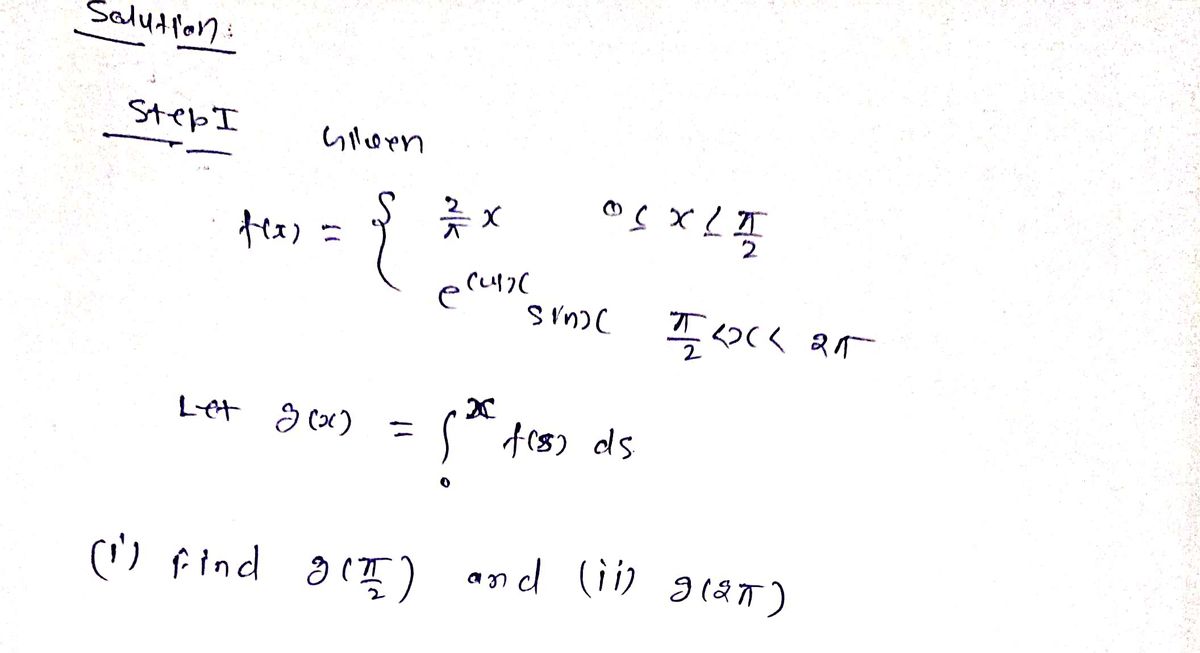 Solution:
Step I Given
f(x) = { 2/π x 0 ≤ x ≤ π/2
e^cosx sinx π/2 < x < 2π
Let g(x) = ∫₀ˣ f(s) ds
(i) find g(π/2) and (ii) g(2π)